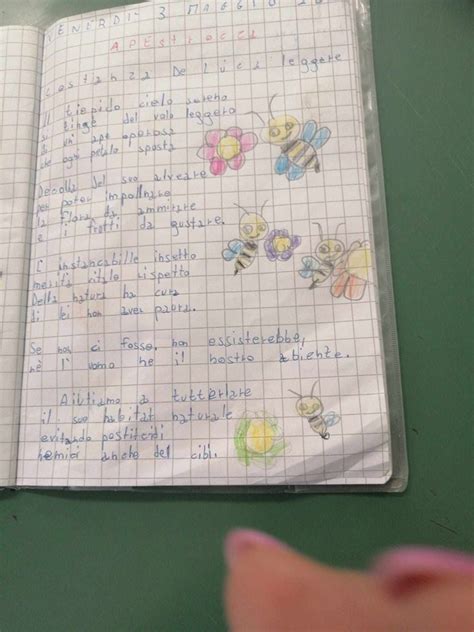 VENERDI' 3 MAGGIO 20
APESTROCCA
Costanza De Luca leggere
Il tiepido cielo sereno
si tinge del volo leggero
di un' ape operosa
che ogni petalo sposta
Decolla del suo alveare
per poter impollinare
la flora da ammirare
e i frutti da gustare.
L' instancabille insetto
merita vitale rispetto
Della natura ha cura
di lei non aver paora.
Se non ci fosse, non essisterebbe,
nè l' vomo ne il nostro abiente.
Aiutiamo a tutterlare
il suo habitat naturale
evitando pestitcidi
nemici anche del cibi.